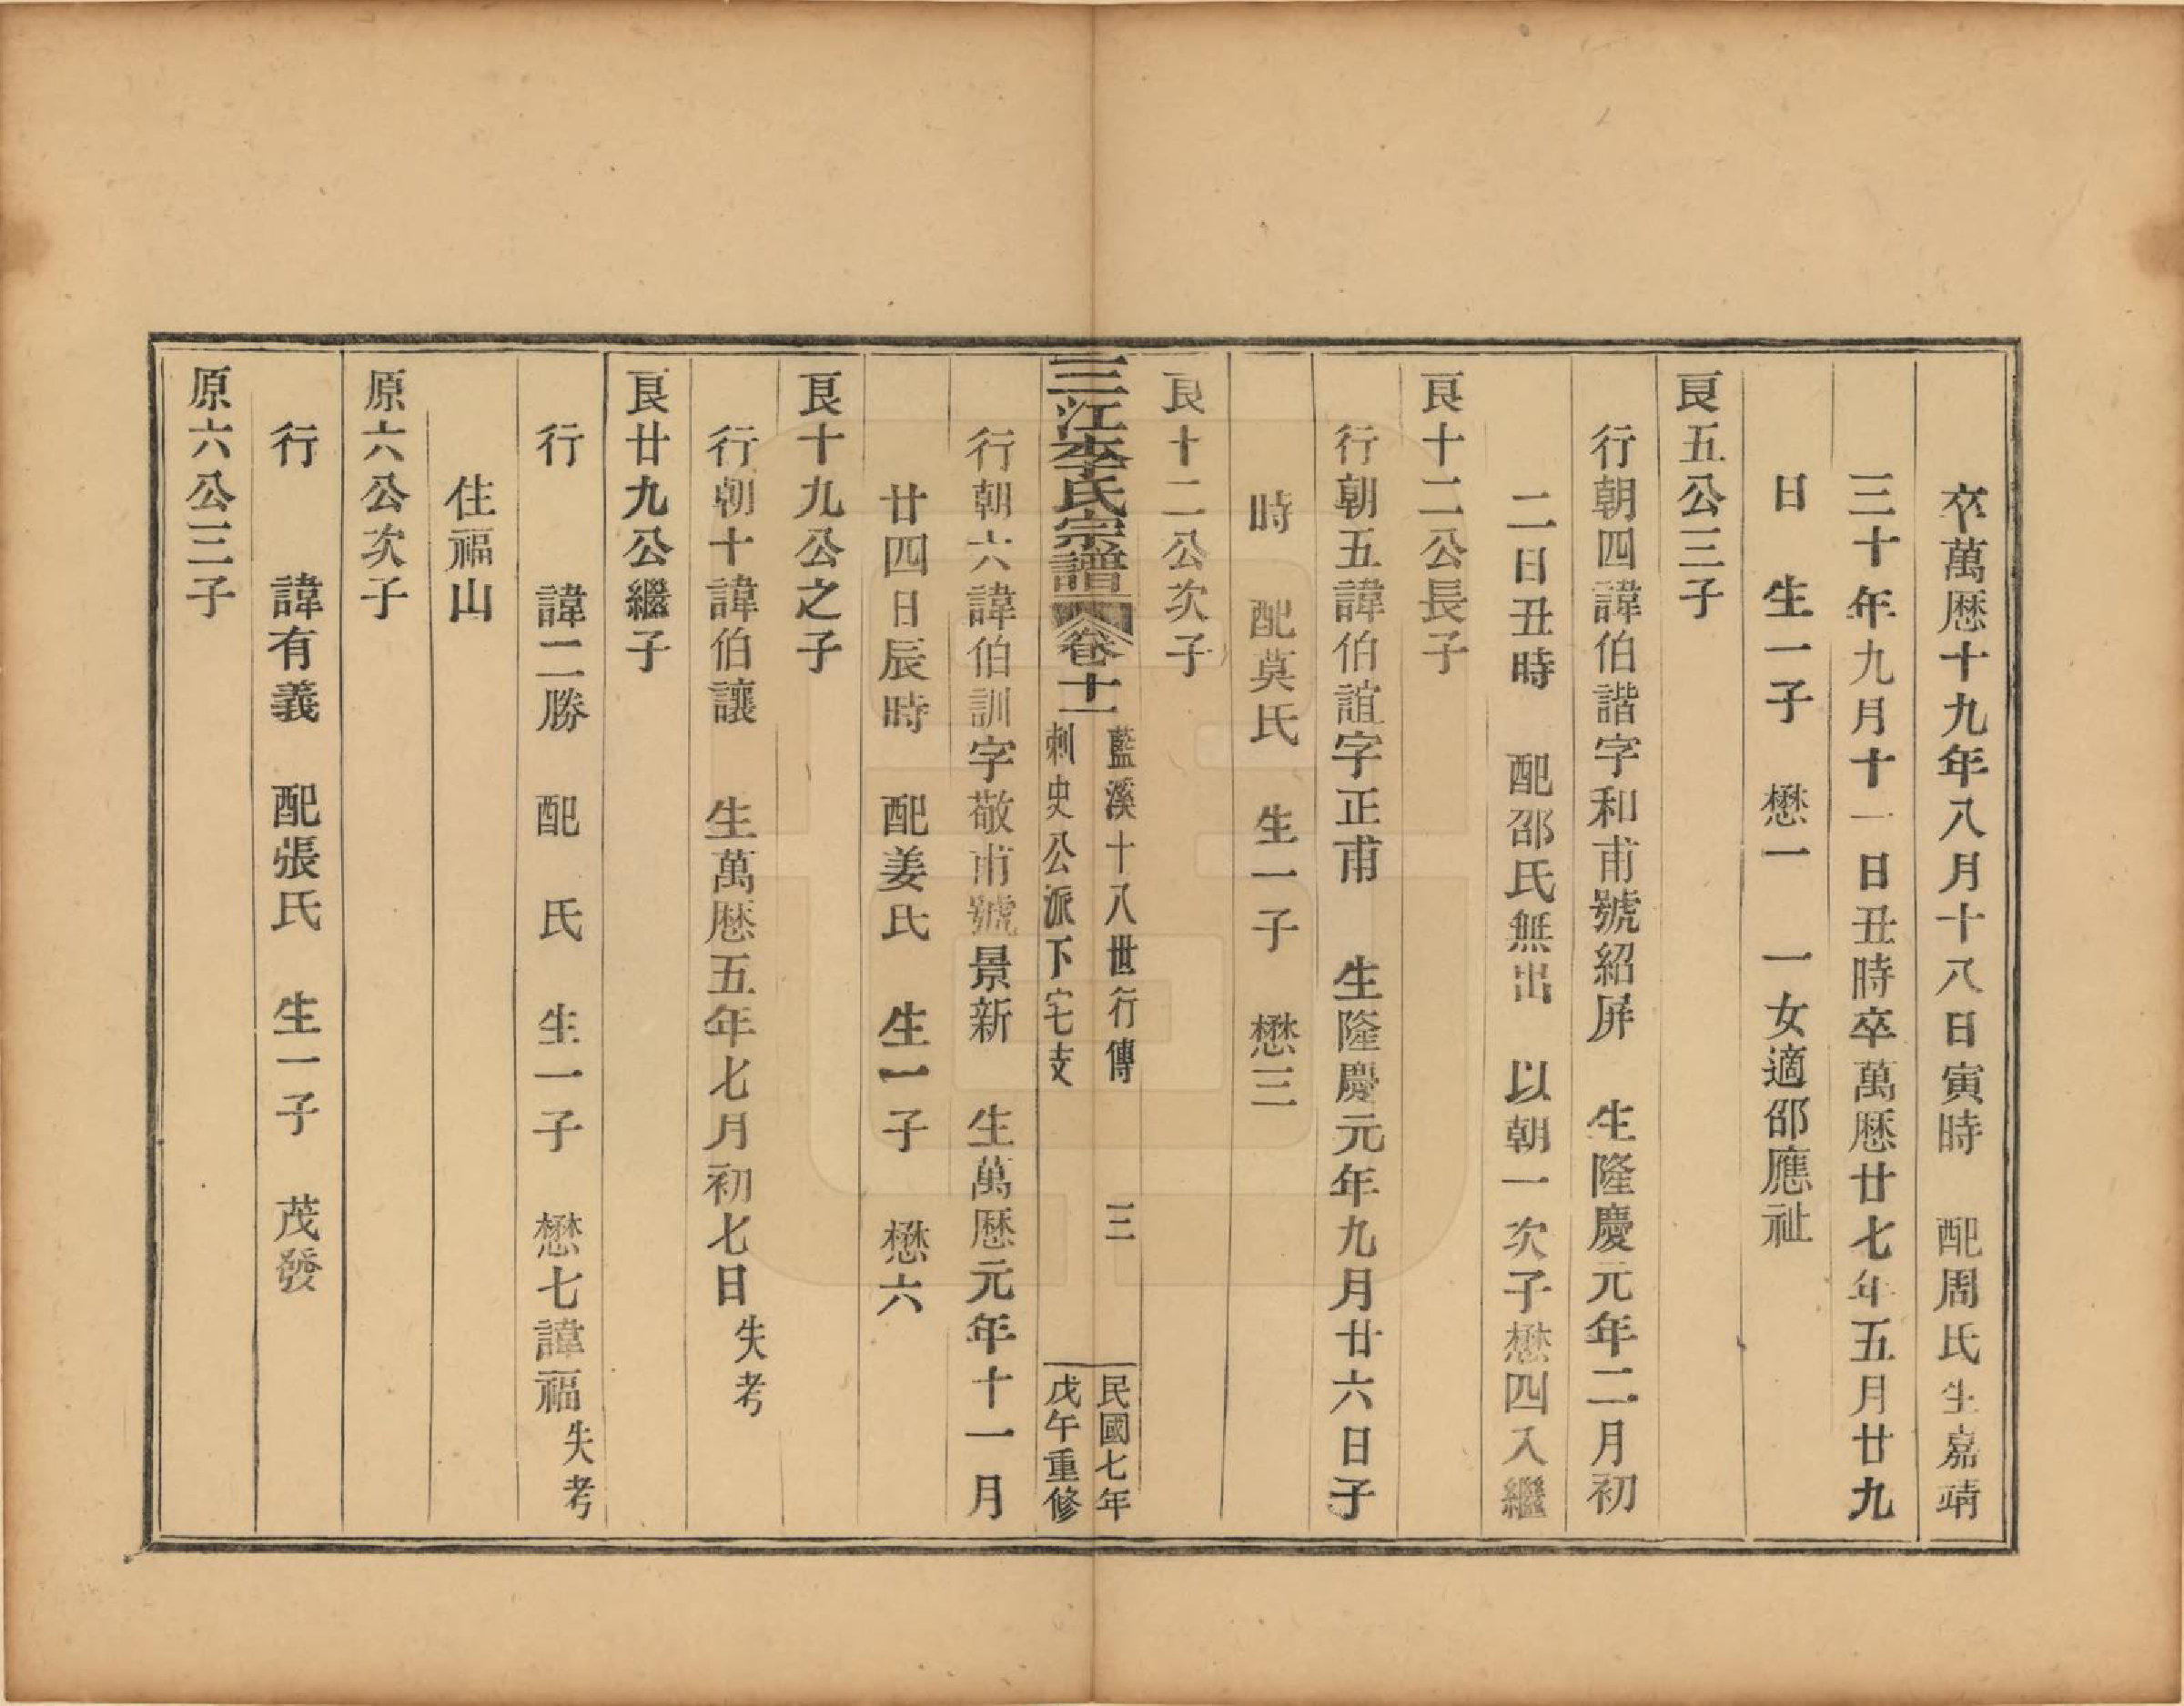 卒萬厯十九年八月十八日寅時　配周氏生嘉靖
三十年九月十一日丑時卒萬厯廿七年五月廿九
日　生一子　懋一　一女適邵應祉
良五公三子
行朝四諱伯諧字和甫號紹屏　生隆慶元年二月初
二日丑時　配邵氏無出　以朝一次子懋四入繼
良十二公長子
行朝五諱伯誼字正甫　生隆慶元年九月廿六日子
時　配莫氏　生一子　懋三
良十二公次子
三江李氏宗譜　卷十一
藍溪十八世行傳　三
刺史公派下宅支
民國七年
戊午重修
行朝六諱伯訓字敬甫號景新　生萬厯元年十一月
廿四日辰時　配姜氏　生一子　懋六
良十九公之子
行朝十諱伯讓　生萬厯五年七月初七日失考
良廿九公繼子
行　　諱二勝　配　氏　生一子　懋七諱福失考
住福山
原六公次子
行　　諱有義　配張氏　生一子　茂發
原六公三子